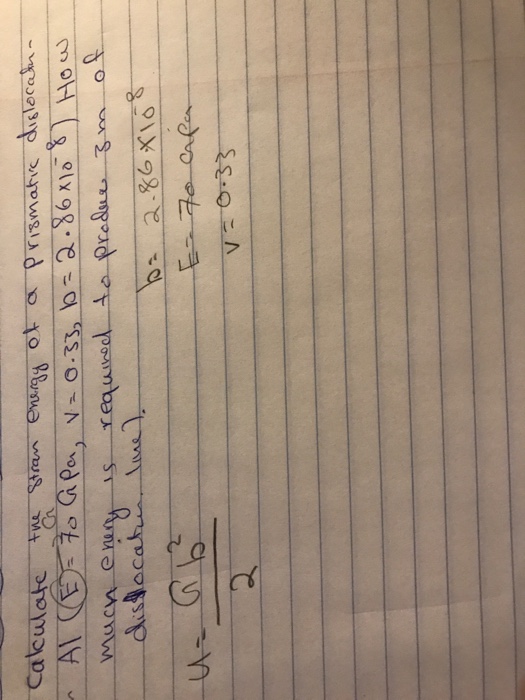 Calculate the stran energy of a prismatic dislocatn-
Al (E = 70 GPa, v = 0.33, b = 2.86 x 10^-8) How
much energy is required to produce 3m of
dislocation line).
b = 2.86 x 10^-8
E = 70 GPa
v = 0.33
U = Gb²
2